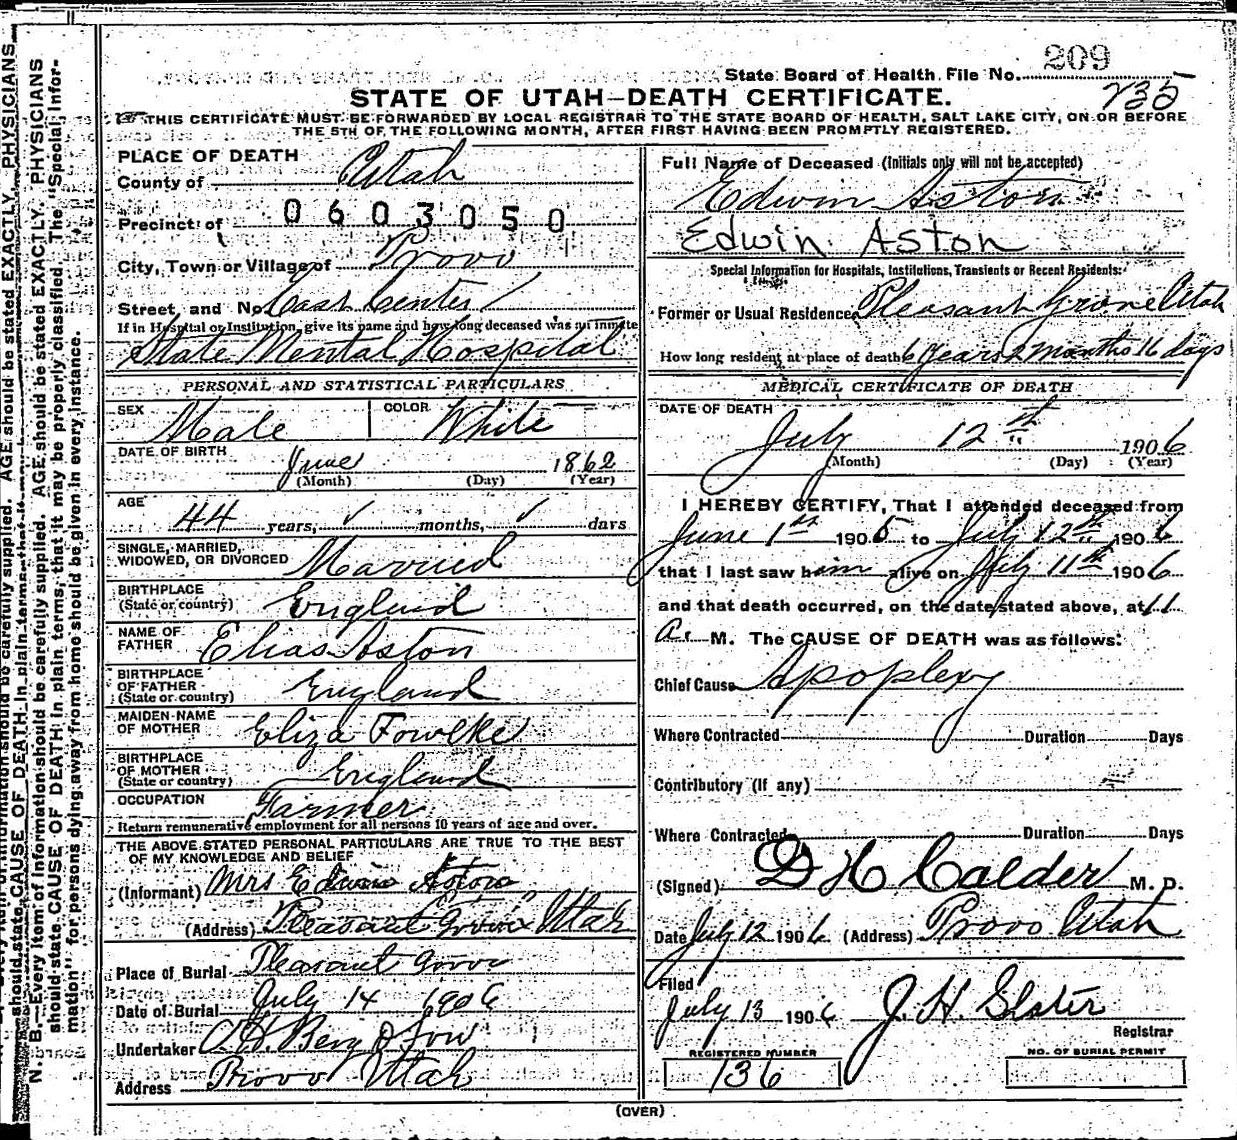 209
State Board of Health File No.
235
STATE OF UTAH—DEATH CERTIFICATE.
THIS CERTIFICATE MUST BE FORWARDED BY LOCAL REGISTRAR TO THE STATE BOARD OF HEALTH, SALT LAKE CITY, ON OR BEFORE
THE 5TH OF THE FOLLOWING MONTH, AFTER FIRST HAVING BEEN PROMPTLY REGISTERED.
PLACE OF DEATH
County of Utah
Precinct of 0603050
City, Town or Village of Provo
Street, and No. East Center
If in Hospital or Institution, give its name and how long deceased was an inmate
State Mental Hospital
PERSONAL AND STATISTICAL PARTICULARS
SEX Male COLOR White
DATE OF BIRTH June 1862
(Month) (Day) (Year)
AGE 44 years, ✓ months, ✓ days
SINGLE, MARRIED,
WIDOWED, OR DIVORCED Married
BIRTHPLACE
(State or country) England
NAME OF
FATHER Elias Aston
BIRTHPLACE
OF FATHER
(State or country) England
MAIDEN NAME
OF MOTHER Eliza Fowlke
BIRTHPLACE
OF MOTHER
(State or country) England
OCCUPATION Farmer
Return remunerative employment for all persons 10 years of age and over.
THE ABOVE STATED PERSONAL PARTICULARS ARE TRUE TO THE BEST
OF MY KNOWLEDGE AND BELIEF
(Informant) Mrs Edwin Aston
(Address) Pleasant Grove Utah
Place of Burial Pleasant Grove
Date of Burial July 14 1906
Undertaker O. H. Berg & Son
Address Provo Utah
Full Name of Deceased (Initials only will not be accepted)
Edwin Aston
Edwin Aston
Special Information for Hospitals, Institutions, Transients or Recent Residents:
Former or Usual Residence Pleasant Grove Utah
How long resident at place of death 6 years 2 months 16 days
MEDICAL CERTIFICATE OF DEATH
DATE OF DEATH
July 12th 1906
(Month) (Day) (Year)
I HEREBY CERTIFY, That I attended deceased from
June 1st 1905 to July 12th 1906
that I last saw him alive on July 11th 1906
and that death occurred, on the date stated above, at 11
a. M. The CAUSE OF DEATH was as follows:
Chief Cause Apoplexy
Where Contracted Duration Days
Contributory (If any)
Where Contracted Duration Days
(Signed) D H Calder M. D.
Date July 12 1906 (Address) Provo Utah
Filed
July 13 1906 J. H. Slater
Registrar
REGISTERED NUMBER
136
NO. OF BURIAL PERMIT
(OVER)
N. B.—Every item of information should be carefully supplied. AGE should be stated EXACTLY. PHYSICIANS
should state CAUSE OF DEATH in plain terms, that it may be properly classified. The "Special Infor-
mation" for persons dying away from home should be given in every instance.